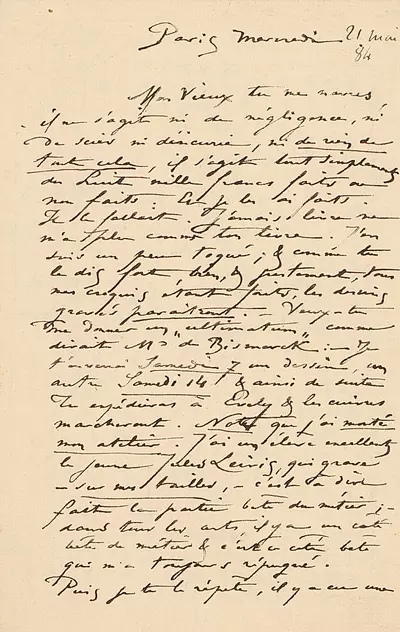 Paris Mercredi 21 Mai
84
Mon Vieux tu me navres
il ne s'agit ni de négligence, ni
de scies ni d'incurie, ni de rien de
tout cela, il s'agit tout simplement
de huit mille francs faits ou
non faits. Et je les ai faits.
Il le fallait. Jamais livre ne
m'a plu comme ton livre. J'en
suis un peu toqué; & comme tu
le dis fort bien, & justement, tous
mes croquis étant faits, les dessins
gravés paraîtront. – Veux-tu
me donner un "ultimatum", comme
dirait Mr de Bismarck: – Je
t'enverrai Samedi 7 un dessin, un
autre Samedi 14 & ainsi de suite
Tu expédieras à Evely & les cuivres
marcheront. Note que j'ai monté
mon atelier. J'ai un élève excellent
le jeune Jules, qui grave
– sur mes tailles, – c'est à dire
fait la partie bête du métier; –
dans tous les arts il y a un côté
bête de métier & c'est ce côté bête
qui m'a toujours répugné.
Puis je te le répète, il y a eu une